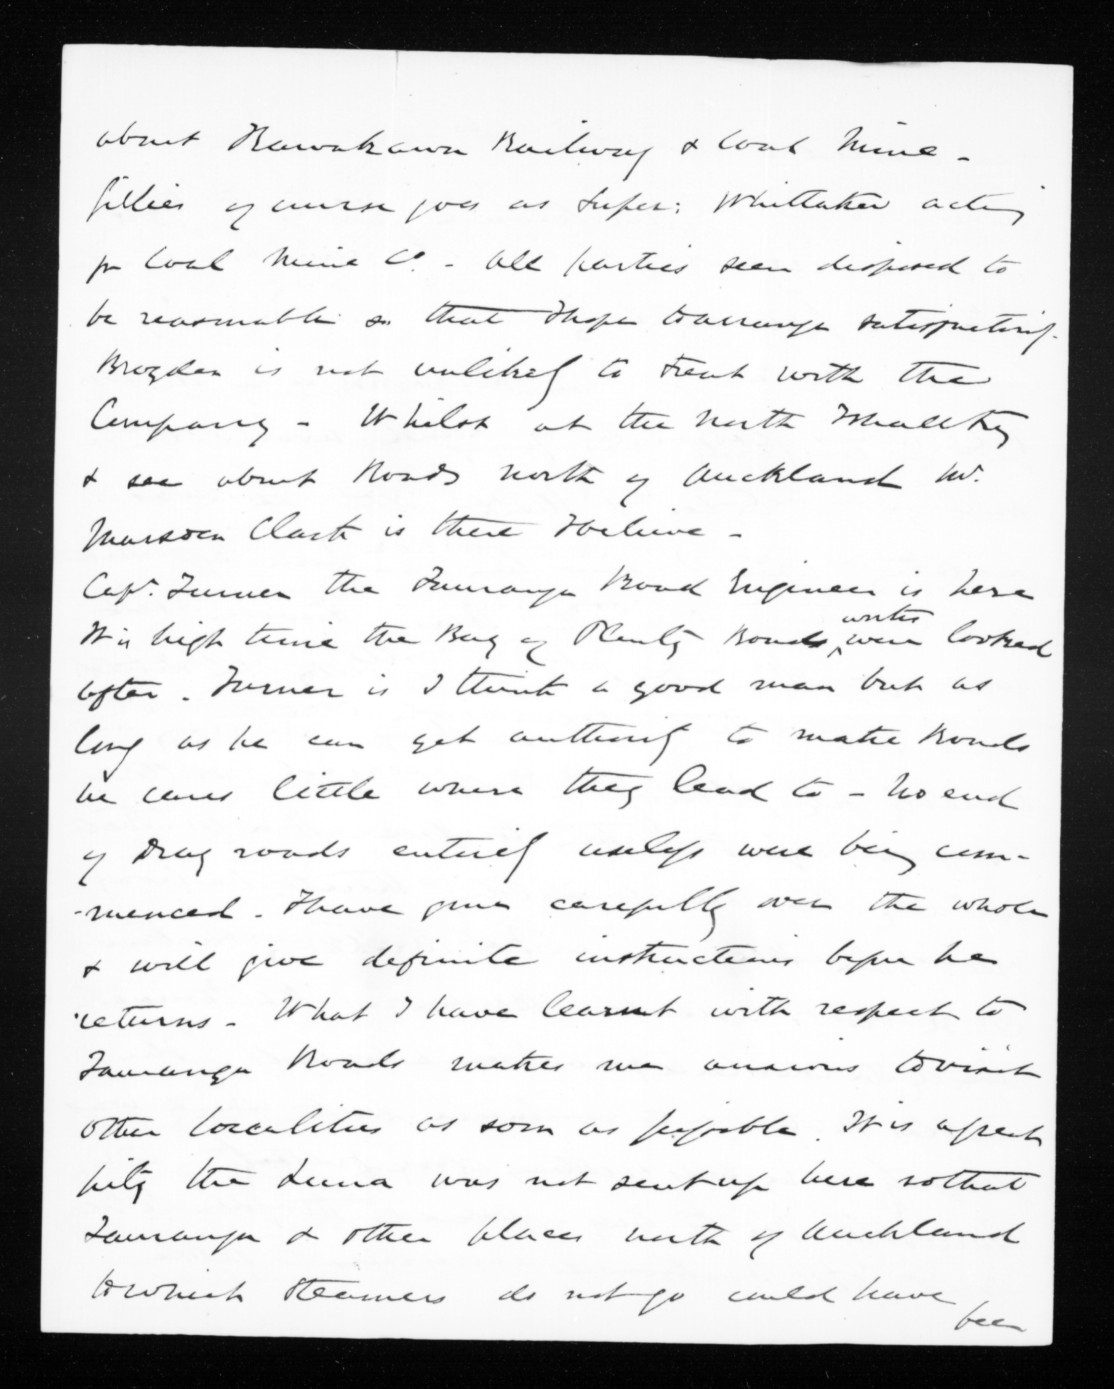 about Kawakawa Railway & Coal Mine -
Gillies of course goes as Super: Whittaker acting
for Coal Mine Co. - All parties seem disposed to
be reasonable so that I hope to arrange satisfactorily.
Brogden is not unlikely to treat with the
Company - Whilst at the North I shall try
& see about Roads north of Auckland Mr.
Marsden Clark is there I believe -
Capt. Turner the Tauranga Road Engineer is here
It is high time the Bay of Plenty Roads, works were looked
after. Turner is I think a good man but as
long as he can get authority to make Roads
he cares little where they lead to - No end
of Dray roads entirely useless were being com-
-menced. I have gone carefully over the whole
& will give definite instructions before he
returns - What I have learnt with respect to
Tauranga Roads makes me anxious to visit
other localities as soon as possible. It is a great
pity the Luna was not sent up here so that
Tauranga & other places north of Auckland
to which Steamers do not go could have
been